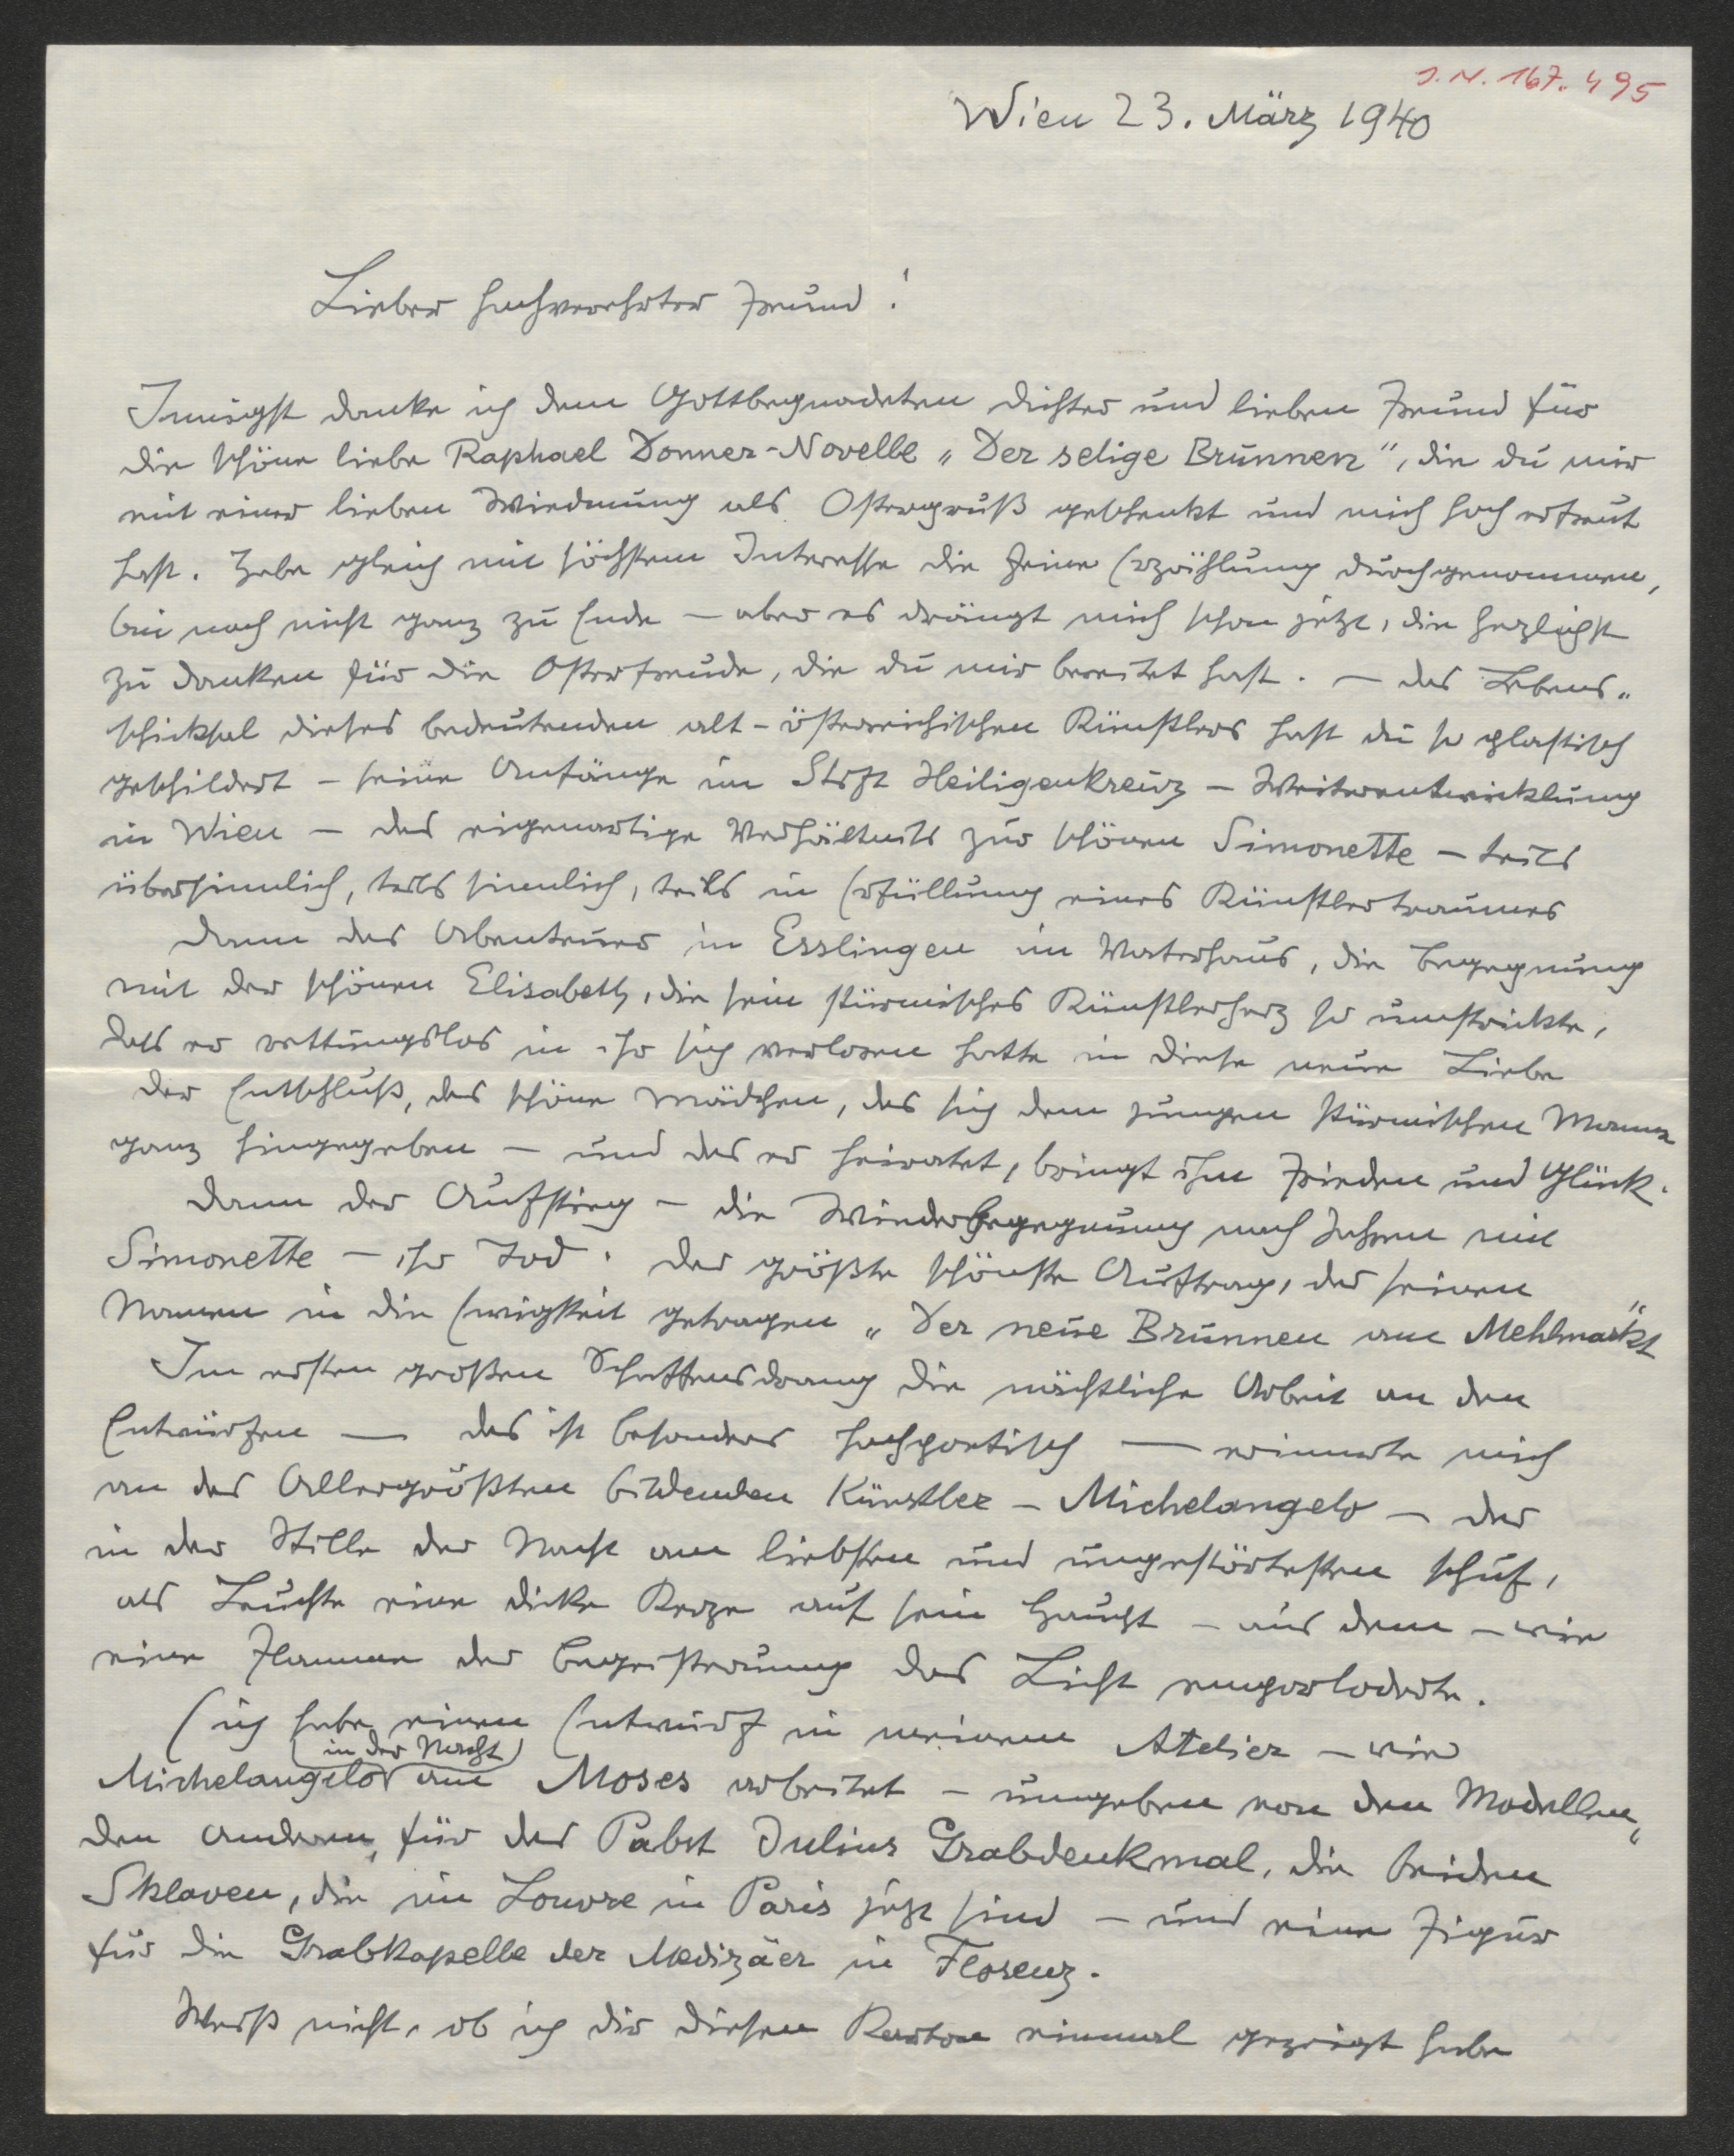 J. N. 167.495
Wien 23. März 1940
Lieber hochverehrter Freund!
Innigst danke ich dem Gottbegnadeten Dichter und lieben Freund für
die schöne liebe Raphael Donner-Novelle „Der selige Brunnen", die du mir
mit einer lieben Wiedmung als Ostergruß geschenkt und mich hoch erfreut
hast. Habe gleich mit höchstem Interesse die feine Erzählung durchgenommen,
bin noch nicht ganz zu Ende – aber es drängt mich schon jetzt, dir herzlichst
zu danken für die Osterfreude, die du mir bereitet hast. – Das Lebens„
schicksal dieses bedeutenden alt-österreichischen Künstlers hast du so plastisch
geschildert – seine Anfänge im Stift Heiligenkreuz – Weiterentwicklung
in Wien – das eigenartige Verhältniss zur schönen Simonette – teils
übersinnlich, teils sinnlich, teils in Erfüllung eines Künstlertraumes
Dann das Abenteuer in Esslingen im Vaterhaus, die Begegnung
mit der schönen Elisabeth, die sein stürmisches Künstlerherz so umstrickte,
dass er rettungslos in ihr sich verloren hatte in diese neue Liebe
der Entschluß, das schöne Mädchen, das sich dem jungen stürmischen Manne
ganz hingegeben – und das er heiratet, bringt ihm Frieden und Glück.
Dann der Aufstieg – die Wiederbegegnung nach Jahren mit
Simonette – ihr Tod. Der größte schönste Auftrag, der seinen
Namen in die Ewigkeit getragen „Der neue Brunnen am Mehlmarkt"
Im ersten großen Schaffensdrang die nächtliche Arbeit an den
Entwürfen — das ist besonders hochpoetisch — erinnerte mich
an des Allergrößten bildenden Künstler – Michelangelo – der
in der Stille der Nacht am liebsten und ungestörtesten schuf,
als Leuchte eine dicke Kerze auf sein Haupt – aus dem – wie
eine Flamme der Begeisterung das Licht emporloderte.
(ich habe einen Entwurf in meinem Atelier – wie
(in der Nacht)
Michelangelo am Moses arbeitet – umgeben von den Modellen„
den anderen, für das Pabst Julius Grabdenkmal, die beiden
Sklaven, die im Louvre in Paris jetzt sind – und eine Figur
für die Grabkapelle der Medizäer in Florenz.
Weiß nicht, ob ich dir diesen Karton einmal gezeigt habe